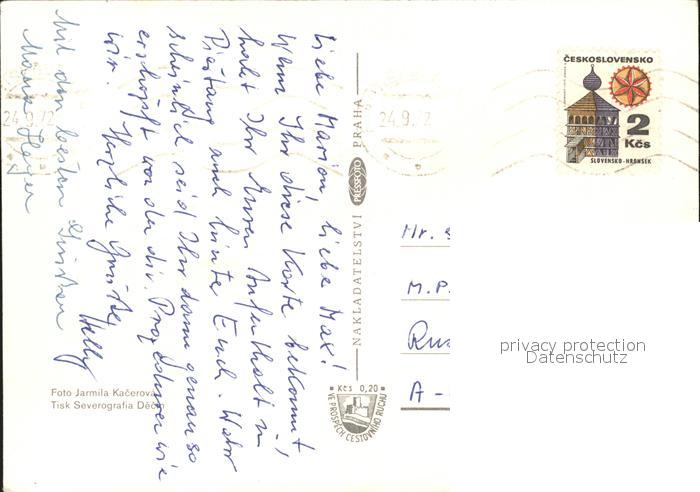 Liebe Marion, liebe Max!
Wenn Ihr diese Karte bekommt,
habt Ihr Euren Aufenthalt in
Piešťany auch hinter Euch. Wahr
scheinlich seid Ihr dann genauso
erschöpft von den div. Prozeduren wie
wir. Herzliche Grüße
Helly
Mit den besten Grüßen
24.9.72
24.9.72
NAKLADATELSTVÍ PRESSFOTO PRAHA
ČESKOSLOVENSKO
2
Kčs
SLOVENSKO-HRONSEK
Mr.
M.P.
A-
privacy protection
Datenschutz
Foto Jarmila Kačerová
Tisk Severografia Děčín
Kčs 0,20
VE PROSPĚCH CESTOVNÍHO RUCHU